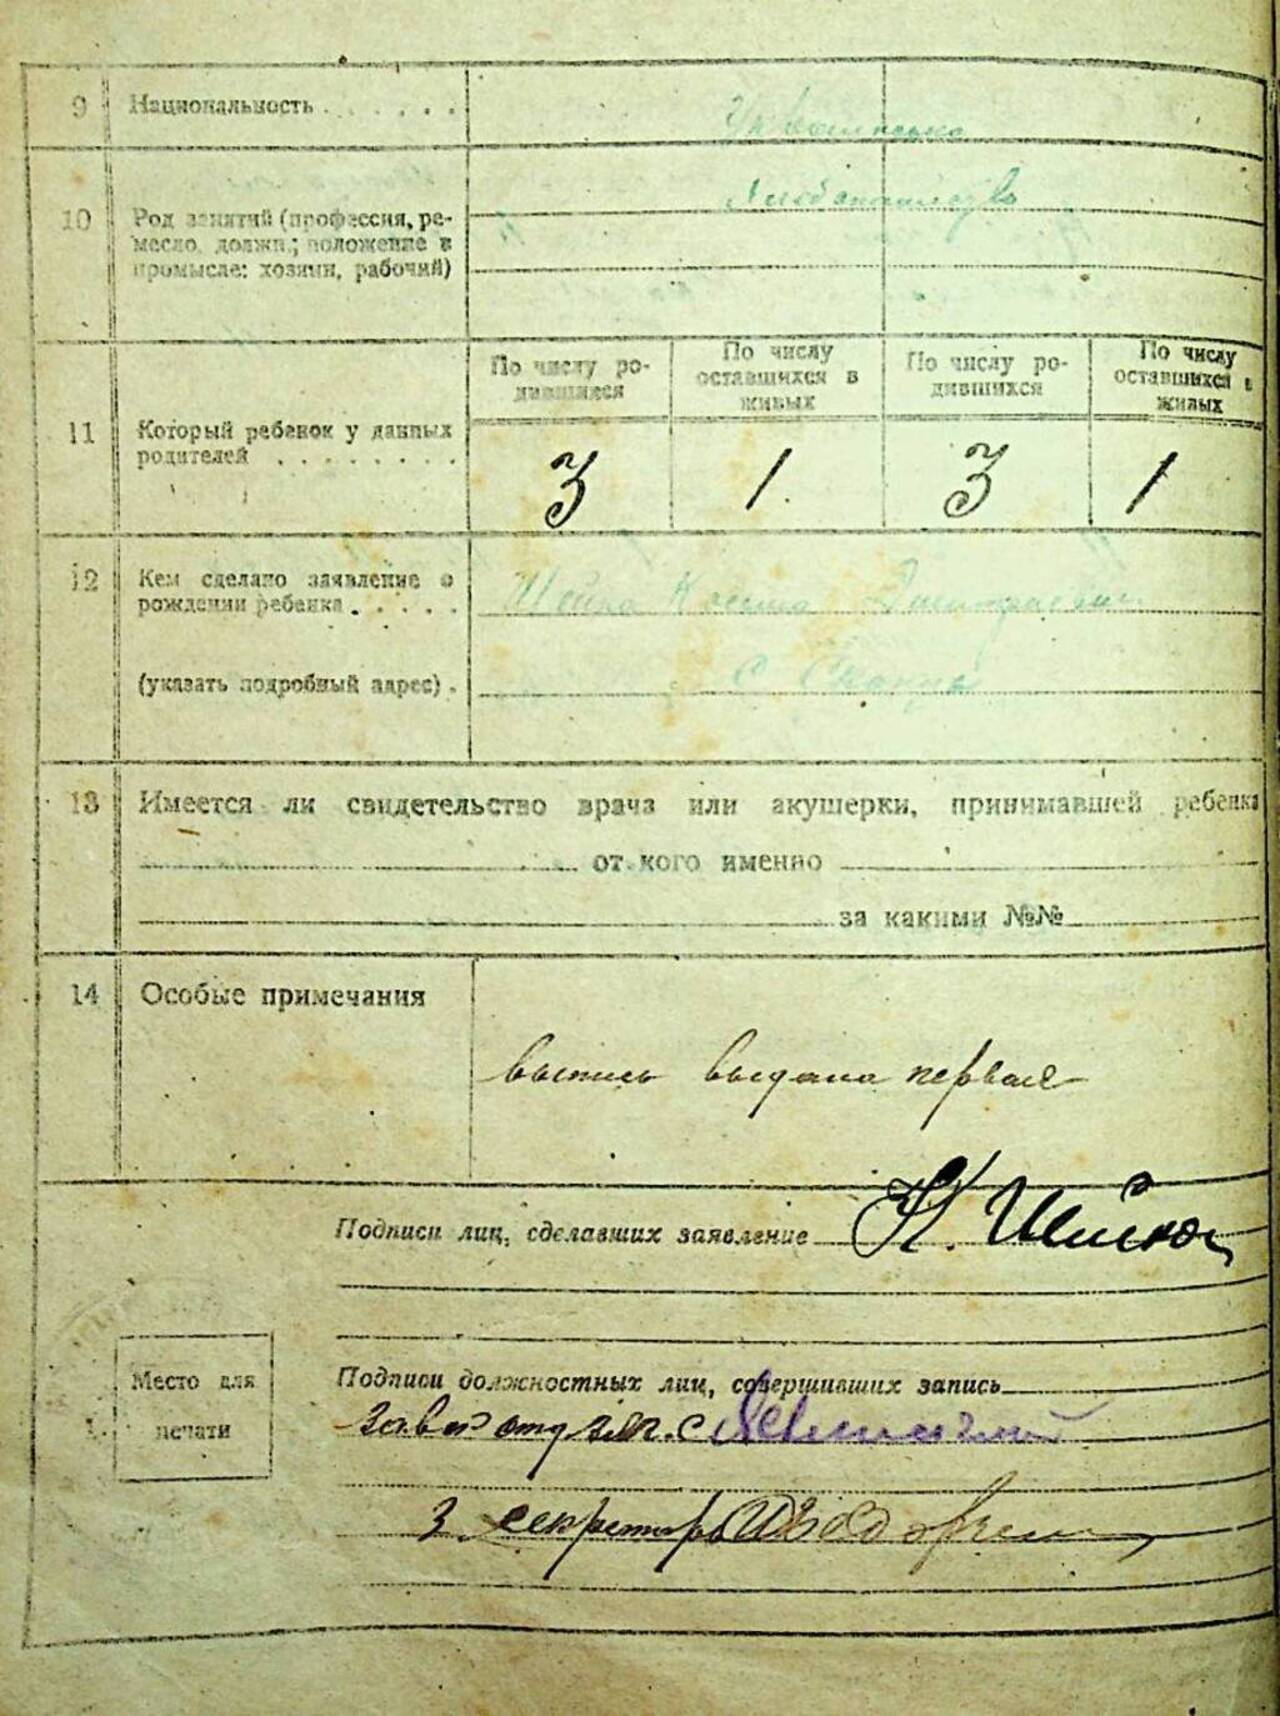 9 Национальность . . . . . .
10 Род занятий (профессия, ре-
месло, должн.; положение в
промысле: хозяин, рабочий)
Хлебопашество
По числу ро-
дившихся
По числу
оставшихся в
живых
По числу ро-
дившихся
По числу
оставшихся в
живых
11 Который ребенок у данных
родителей . . . . . . . .
3 1 3 1
12 Кем сделано заявление о
рождении ребенка . . . . .
Шейко Дмитриевич
(указать подробный адрес) .
с
13 Имеется ли свидетельство врача или акушерки, принимавшей ребенка
от кого именно
за какими №№
14 Особые примечания
выпись выдана первая
Подписи лиц, сделавших заявление К. Шейко
Место для
печати
Подписи должностных лиц, совершивших запись
Зав
З секретарь